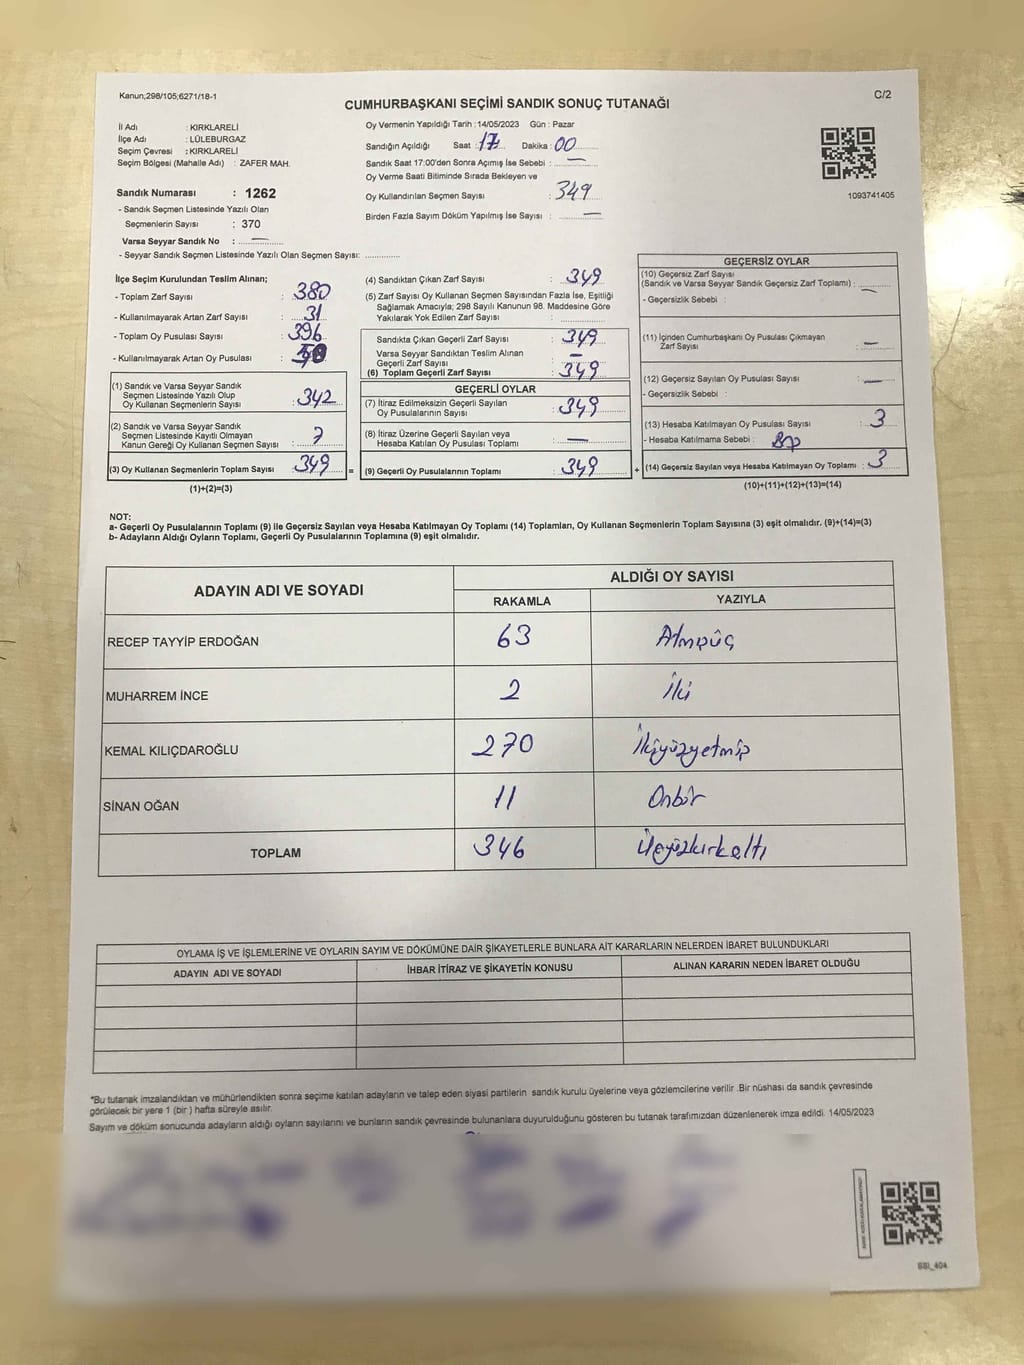 Kanun;298/105;6271/18-1
C/2
CUMHURBAŞKANI SEÇİMİ SANDIK SONUÇ TUTANAĞI
İl Adı : KIRKLARELİ
İlçe Adı : LÜLEBURGAZ
Seçim Çevresi : KIRKLARELİ
Seçim Bölgesi (Mahalle Adı) : ZAFER MAH.
Sandık Numarası : 1262
- Sandık Seçmen Listesinde Yazılı Olan
Seçmenlerin Sayısı : 370
Varsa Seyyar Sandık No : —
- Seyyar Sandık Seçmen Listesinde Yazılı Olan Seçmen Sayısı: ..............
Oy Vermenin Yapıldığı Tarih :14/05/2023 Gün : Pazar
Sandığın Açıldığı Saat : 17 Dakika : 00
Sandık Saat 17:00'den Sonra Açımış İse Sebebi : —
Oy Verme Saati Bitiminde Sırada Bekleyen ve
Oy Kullandırılan Seçmen Sayısı : 349
Birden Fazla Sayım Döküm Yapılmış İse Sayısı : —
1093741405
İlçe Seçim Kurulundan Teslim Alınan;
- Toplam Zarf Sayısı : 380
- Kullanılmayarak Artan Zarf Sayısı : 31
- Toplam Oy Pusulası Sayısı : 396
- Kullanılmayarak Artan Oy Pusulası :
(1) Sandık ve Varsa Seyyar Sandık
Seçmen Listesinde Yazılı Olup
Oy Kullanan Seçmenlerin Sayısı : 342
(2) Sandık ve Varsa Seyyar Sandık
Seçmen Listesinde Kayıtlı Olmayan
Kanun Gereği Oy Kullanan Seçmen Sayısı : 7
(3) Oy Kullanan Seçmenlerin Toplam Sayısı : 349 =
(1)+(2)=(3)
(4) Sandıktan Çıkan Zarf Sayısı : 349
(5) Zarf Sayısı Oy Kullanan Seçmen Sayısından Fazla İse, Eşitliği
Sağlamak Amacıyla; 298 Sayılı Kanunun 98. Maddesine Göre
Yakılarak Yok Edilen Zarf Sayısı :
Sandıkta Çıkan Geçerli Zarf Sayısı : 349
Varsa Seyyar Sandıktan Teslim Alınan
Geçerli Zarf Sayısı : —
(6) Toplam Geçerli Zarf Sayısı : 349
GEÇERLİ OYLAR
(7) İtiraz Edilmeksizin Geçerli Sayılan
Oy Pusulalarının Sayısı : 349
(8) İtiraz Üzerine Geçerli Sayılan veya
Hesaba Katılan Oy Pusulası Sayısı : —
(9) Geçerli Oy Pusulalarının Toplamı : 349 +
GEÇERSİZ OYLAR
(10) Geçersiz Zarf Sayısı
(Sandık ve Varsa Seyyar Sandık Geçersiz Zarf Toplamı) : —
- Geçersizlik Sebebi :
(11) İçinden Cumhurbaşkanı Oy Pusulası Çıkmayan
Zarf Sayısı : —
(12) Geçersiz Sayılan Oy Pusulası Sayısı : —
- Geçersizlik Sebebi :
(13) Hesaba Katılmayan Oy Pusulası Sayısı : 3
- Hesaba Katılmama Sebebi :
(14) Geçersiz Sayılan veya Hesaba Katılmayan Oy Toplamı : 3
(10)+(11)+(12)+(13)=(14)
NOT:
a- Geçerli Oy Pusulalarının Toplamı (9) ile Geçersiz Sayılan veya Hesaba Katılmayan Oy Toplamı (14) Toplamları, Oy Kullanan Seçmenlerin Toplam Sayısına (3) eşit olmalıdır. (9)+(14)=(3)
b- Adayların Aldığı Oyların Toplamı, Geçerli Oy Pusulalarının Toplamına (9) eşit olmalıdır.
ADAYIN ADI VE SOYADI
ALDIĞI OY SAYISI
RAKAMLA YAZIYLA
RECEP TAYYİP ERDOĞAN 63 Atmışüç
MUHARREM İNCE 2 İki
KEMAL KILIÇDAROĞLU 270 İkiyüzyetmiş
SİNAN OĞAN 11 Onbir
TOPLAM 346 Üçyüzkırkaltı
OYLAMA İŞ VE İŞLEMLERİNE VE OYLARIN SAYIM VE DÖKÜMÜNE DAİR ŞİKAYETLERLE BUNLARA AİT KARARLARIN NELERDEN İBARET BULUNDUKLARI
ADAYIN ADI VE SOYADI İHBAR İTİRAZ VE ŞİKAYETİN KONUSU ALINAN KARARIN NEDEN İBARET OLDUĞU
*Bu tutanak imzalandıktan ve mühürlendikten sonra seçime katılan adayların ve talep eden siyasi partilerin sandık kurulu üyelerine veya gözlemcilerine verilir .Bir nüshası da sandık çevresinde
görülecek bir yere 1 (bir ) hafta süreyle asılır.
Sayım ve döküm sonucunda adayların aldığı oyların sayılarını ve bunların sandık çevresinde bulunanlara duyurulduğunu gösteren bu tutanak tarafımızdan düzenlenerek imza edildi. 14/05/2023